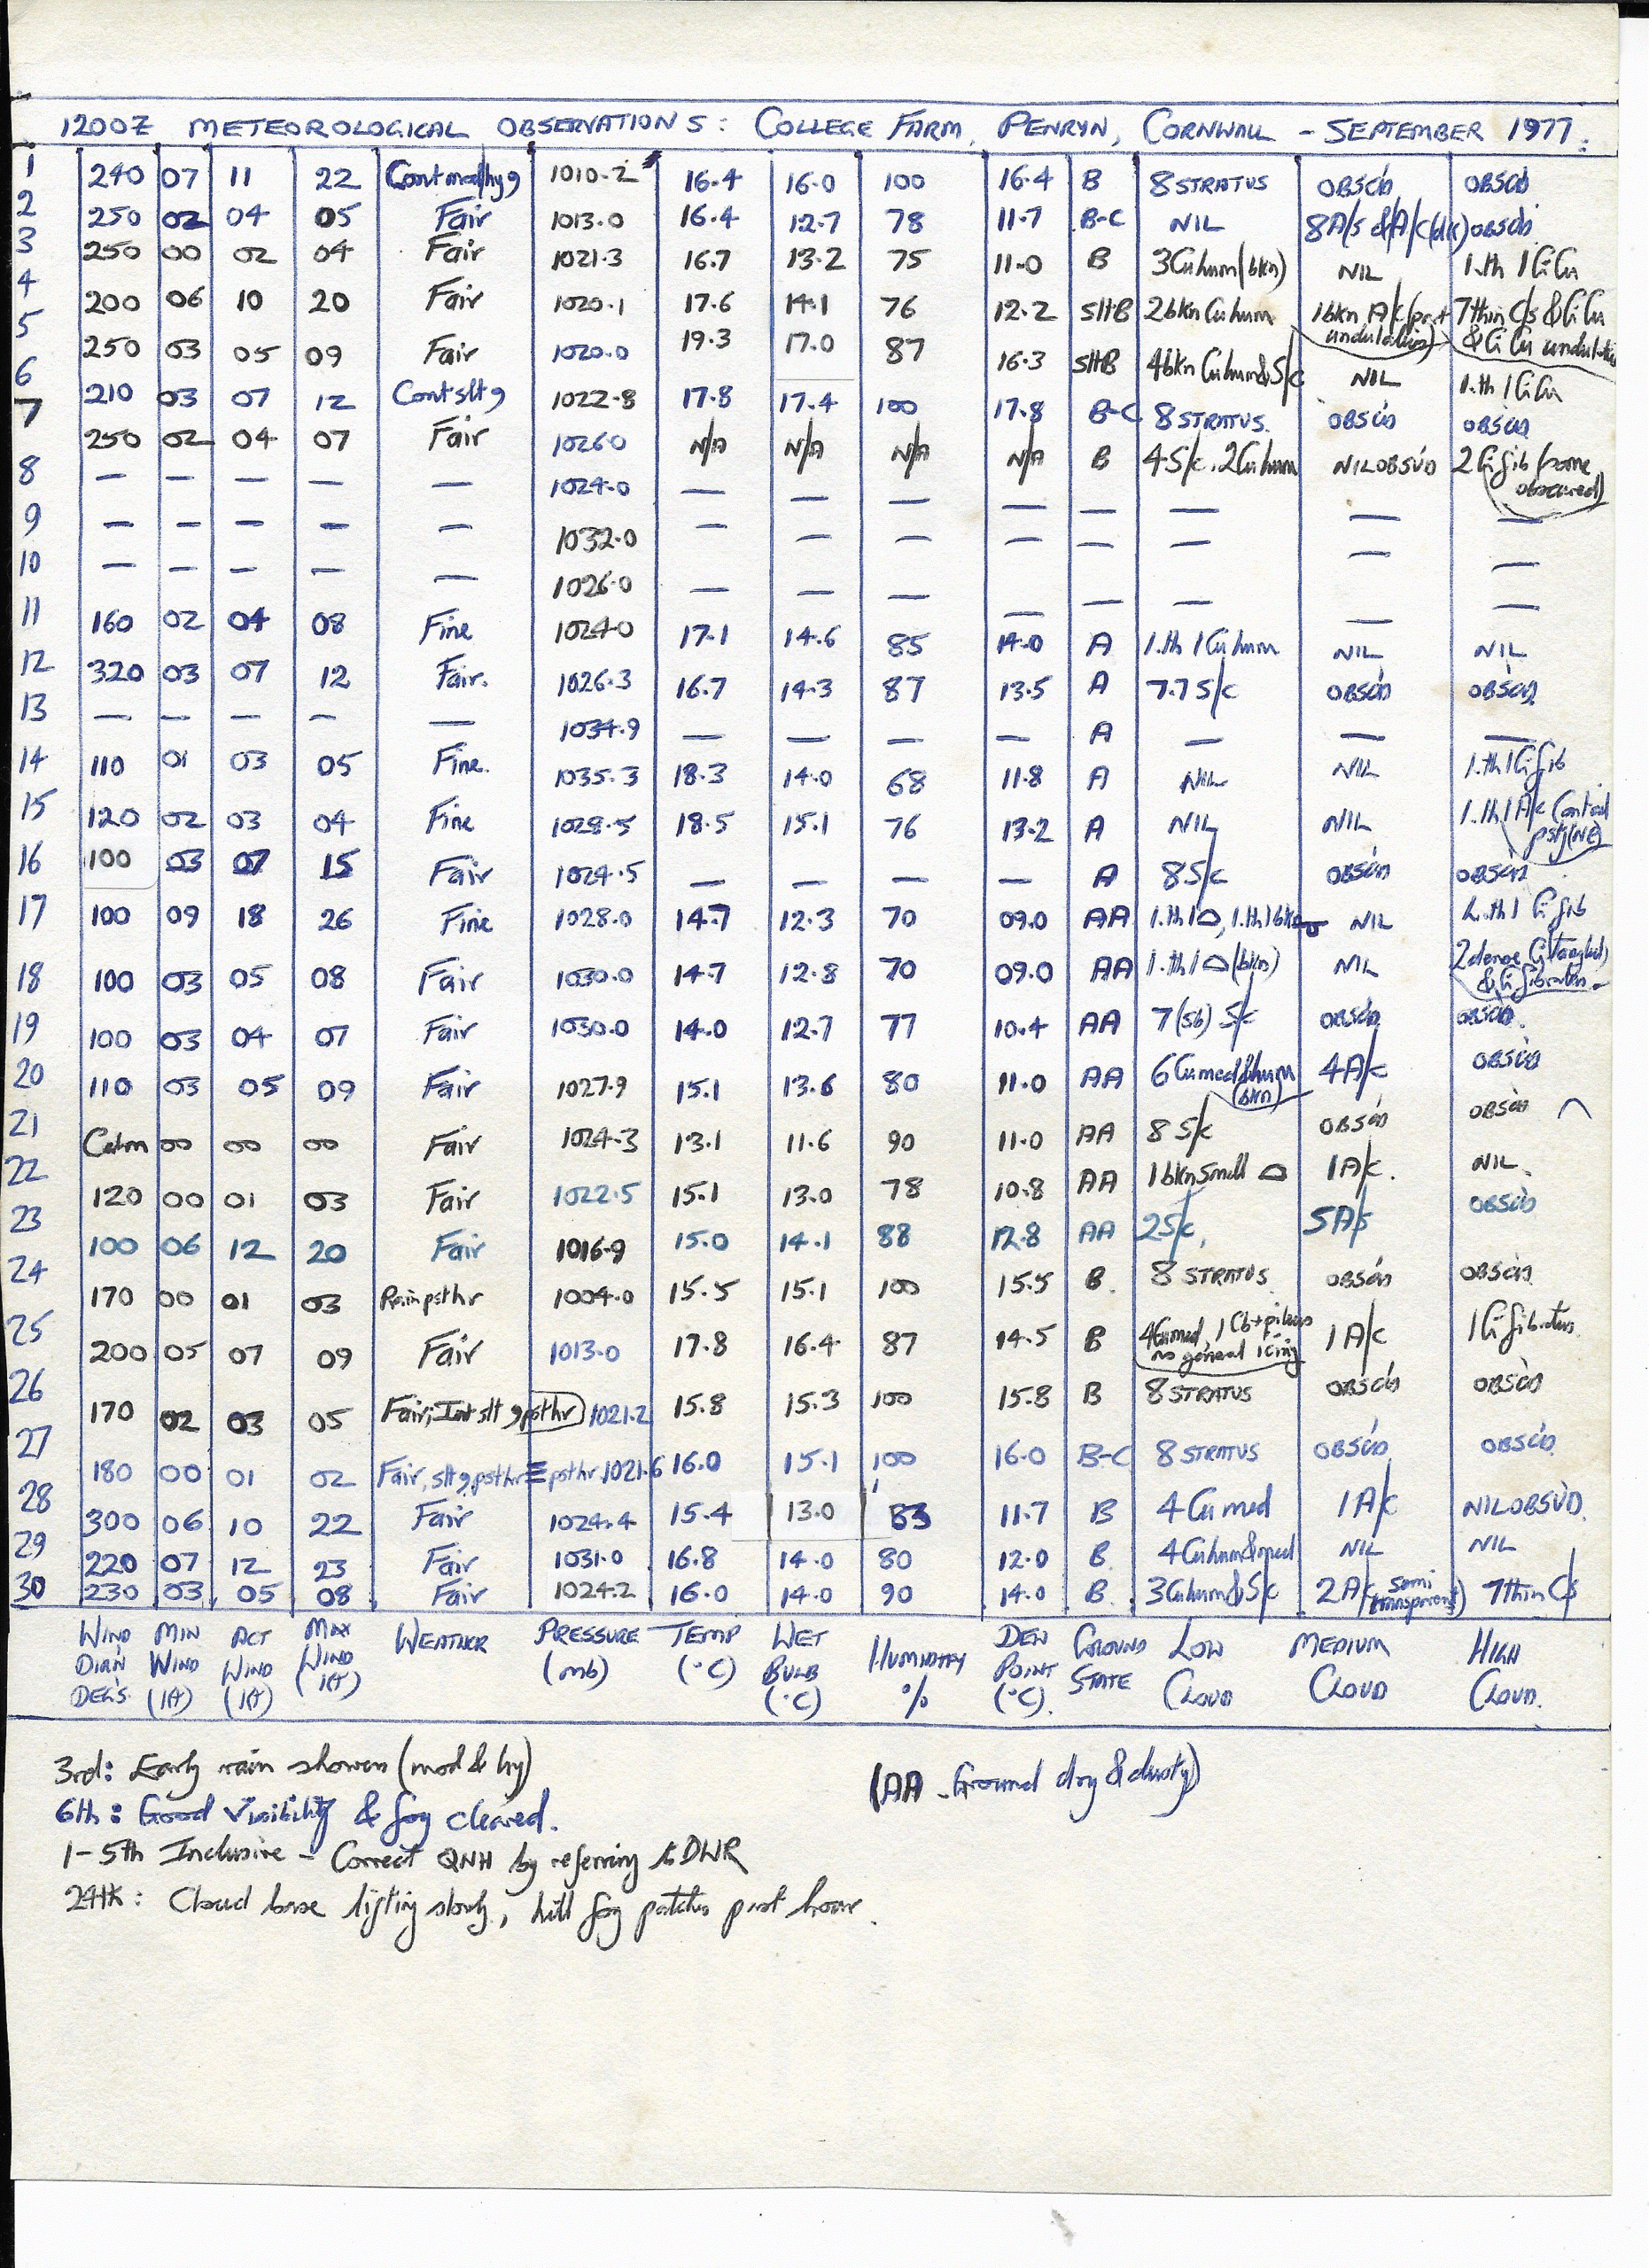 1200Z METEOROLOGICAL OBSERVATIONS: COLLEGE FARM, PENRYN, CORNWALL - SEPTEMBER 1977.
1 240 07 11 22 1010.2 16.4 16.0 100 16.4 B 8 STRATUS OBSCD OBSCD
2 250 02 04 05 Fair 1013.0 16.4 12.7 78 11.7 B-C NIL 8 A/s & A/c OBSCD
3 250 00 02 04 Fair 1021.3 16.7 13.2 75 11.0 B 3 Cu hum (bkn) NIL 1.th 1 CiCu
4 200 06 10 20 Fair 1020.1 17.6 14.1 76 12.2 SHB 2 bkn Cu hum 1 bkn A/c (part undulatus) 7 thin C/s & CiCu & CiCu undulatus
5 250 03 05 09 Fair 1020.0 19.3 17.0 87 16.3 SHB 4 bkn Cu hum & S/c NIL 1.th 1 CiCu
6 210 03 07 12 Cont slt 9 1022.8 17.8 17.4 100 17.8 B-C 8 STRATUS. OBSCD OBSCD
7 250 02 04 07 Fair 1026.0 N/A N/A N/A N/A B 4 S/c, 2 Cu hum NILOBSVD 2 Ci fib (some obscured)
8 — — — — — 1024.0 — — — — — — — —
9 — — — — — 1032.0 — — — — — — — —
10 — — — — — 1026.0 — — — — — — — —
11 160 02 04 08 Fine 1024.0 17.1 14.6 85 14.0 A 1.th 1 Cu hum NIL NIL
12 320 03 07 12 Fair. 1026.3 16.7 14.3 87 13.5 A 7.7 S/c OBSCD OBSCD
13 — — — — — 1034.9 — — — — A — — —
14 110 01 03 05 Fine. 1035.3 18.3 14.0 68 11.8 A NIL NIL 1.th 1 Ci fib
15 120 02 03 04 Fine 1028.5 18.5 15.1 76 13.2 A NIL NIL 1.th 1 A/c (NE)
16 100 03 07 15 Fair 1024.5 — — — — A 8 S/c OBSCD OBSCD
17 100 09 18 26 Fine 1028.0 14.7 12.3 70 09.0 AA 1.th 1 ⌓, 1.th 1 bkn NIL Ci fib
18 100 03 05 08 Fair 1030.0 14.7 12.8 70 09.0 AA 1.th 1 ⌓ (bkn) NIL 2 dense Ci (tangled) & Ci fibratus
19 100 03 04 07 Fair 1030.0 14.0 12.7 77 10.4 AA 7 (sb) S/c OBSCD OBSCD.
20 110 03 05 09 Fair 1027.9 15.1 13.6 80 11.0 AA 6 Cu med & hum (bkn) 4 A/c OBSCD
21 Calm 00 00 00 Fair 1024.3 13.1 11.6 90 11.0 AA 8 S/c OBSCD OBSCD
22 120 00 01 03 Fair 1022.5 15.1 13.0 78 10.8 AA 1 bkn small ⌓ 1 A/c. NIL.
23 100 06 12 20 Fair 1016.9 15.0 14.1 88 12.8 AA 2 S/c, 5 A/s OBSCD
24 170 00 01 03 Rain psthr 1004.0 15.5 15.1 100 15.5 B. 8 STRATUS OBSCD OBSCD
25 200 05 07 09 Fair 1013.0 17.8 16.4 87 14.5 B 4 Cu med, 1 Cb + pileus no general icing 1 A/c 1 Ci fibratus
26 170 02 03 05 Fair, Int slt 9 psthr 1021.2 15.8 15.3 100 15.8 B 8 STRATUS OBSCD OBSCD
27 180 00 01 02 Fair, slt 9 psthr ≡ psthr 1021.6 16.0 15.1 100 16.0 B-C 8 STRATUS OBSCD OBSCD
28 300 06 10 22 Fair 1024.4 15.4 13.0 83 11.7 B 4 Cu med 1 A/c NILOBSVD.
29 220 07 12 23 Fair 1031.0 16.8 14.0 80 12.0 B. 4 Cu hum & med NIL NIL
30 230 03 05 08 Fair 1024.2 16.0 14.0 90 14.0 B. 3 Cu hum & S/c 2 A/c (semi transparent) 7 thin C/s
WIND DIRN DEG'S MIN WIND (KT) ACT WIND (KT) MAX WIND (KT) WEATHER PRESSURE (mb) TEMP (°C) WET BULB (°C) HUMIDITY % DEW POINT (°C). GROUND STATE LOW CLOUD MEDIUM CLOUD HIGH CLOUD.
3rd: Early rain showers (mod & hy)
(AA - Ground dry & dusty)
6th: Good Visibility & fog cleared.
1-5th Inclusive - Correct QNH by referring to DWR
24th: Cloud base lifting slowly, hill fog patches past hour.